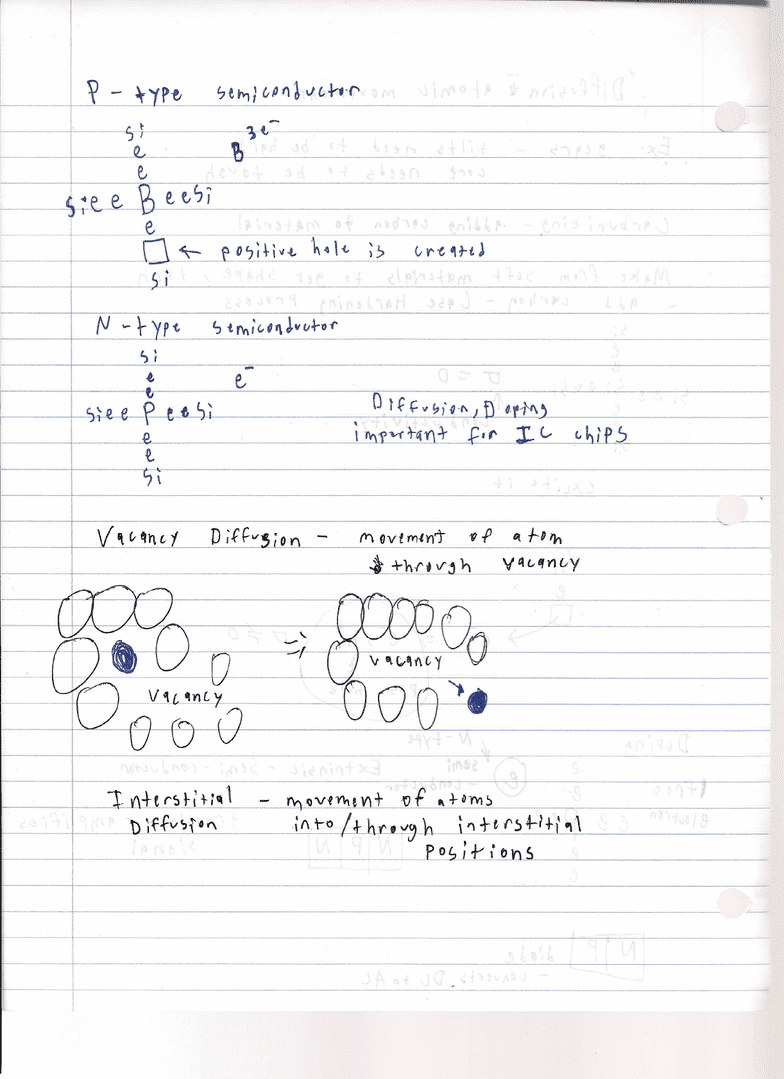 P - type semiconductor
si
e
e
3e⁻
B
si e e B e e Si
e
← positive hole is created
si
N - type semiconductor
si
e
e
e⁻
si e e P e e Si
e
e
si
Diffusion, Doping
important for IC chips
Vacancy Diffusion - movement of atom
through vacancy
Vacancy
⇒
vacancy
Interstitial - movement of atoms
Diffusion into/through interstitial
positions